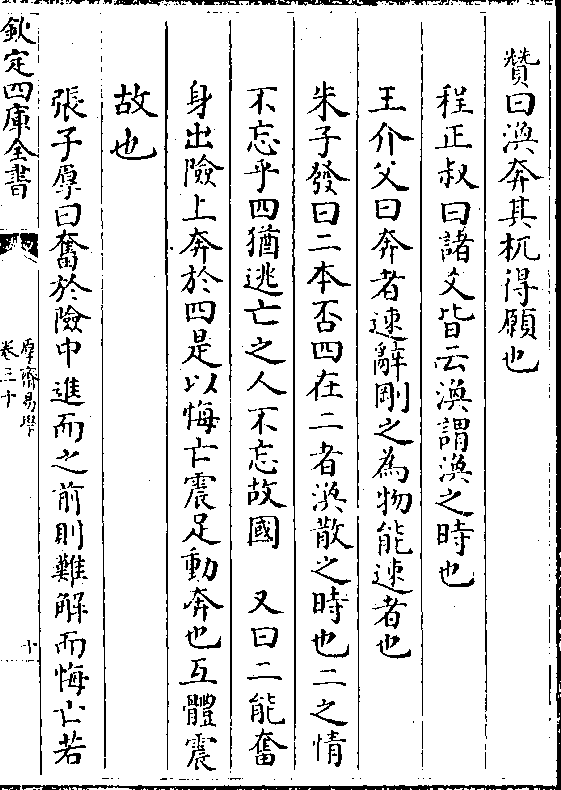 贊曰渙奔其杌得願也
程正叔曰諸爻皆云渙謂渙之時也
王介父曰奔者速辭剛之為物能速者也
朱子發曰二本否四在二者渙散之時也二之情
不忘乎四猶逃亡之人不忘故國　又曰二能奮
身出險上奔於四是以悔亡震足動奔也互體震
故也
張子厚曰奮於險中進而之前則難解而悔亡若
欽定四庫全書
厚齋易學
卷三十
十